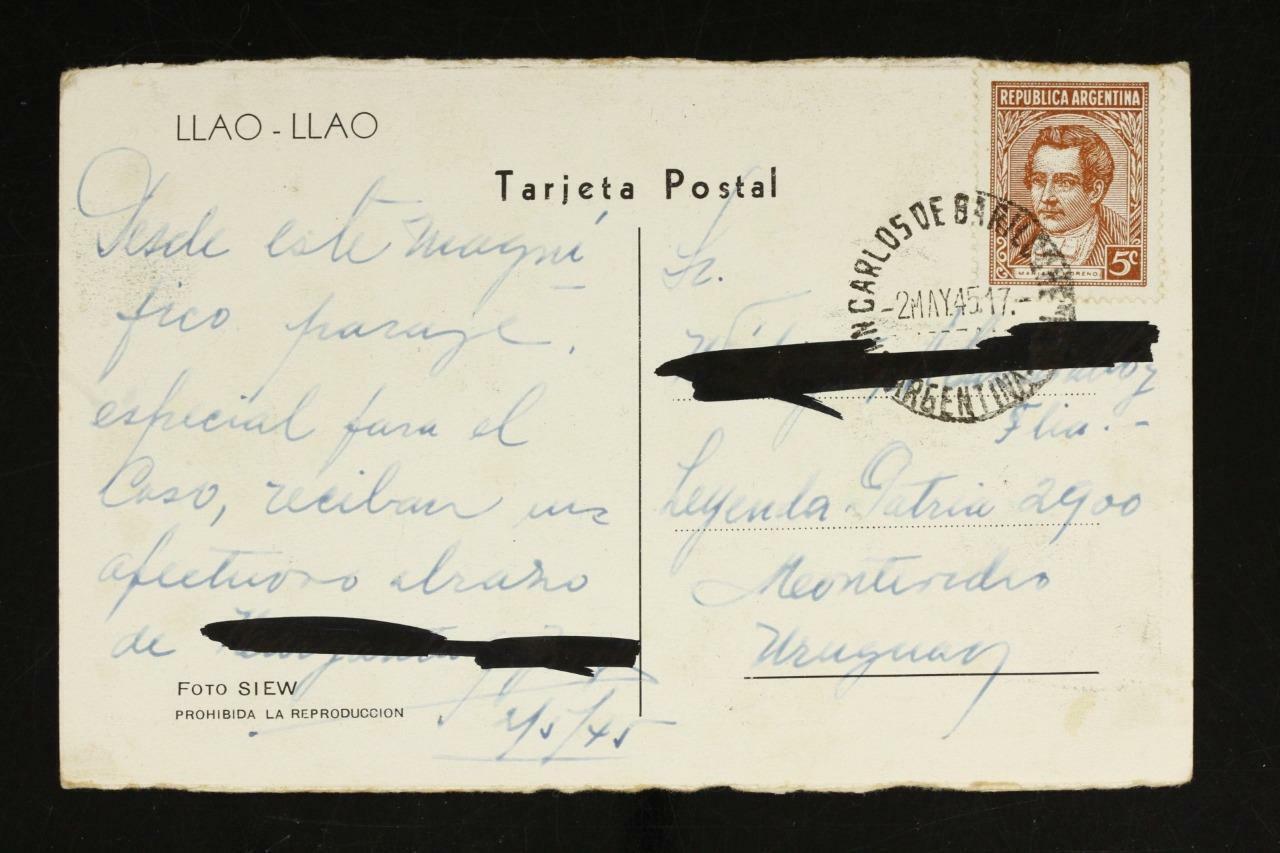 LLAO - LLAO
Tarjeta Postal
Desde este magní
fico paraje,
especial para el
Caso, reciban un
afectuoso abrazo
de
2/5/45
FOTO SIEW
PROHIBIDA LA REPRODUCCION
REPUBLICA ARGENTINA
MARIANO MORENO
5c
SAN CARLOS DE BARILOCHE
-2MAY.45.17.-
ARGENTINA
Sr.
Flia.-
Leyenda Patria 2900
Montevideo
Uruguay